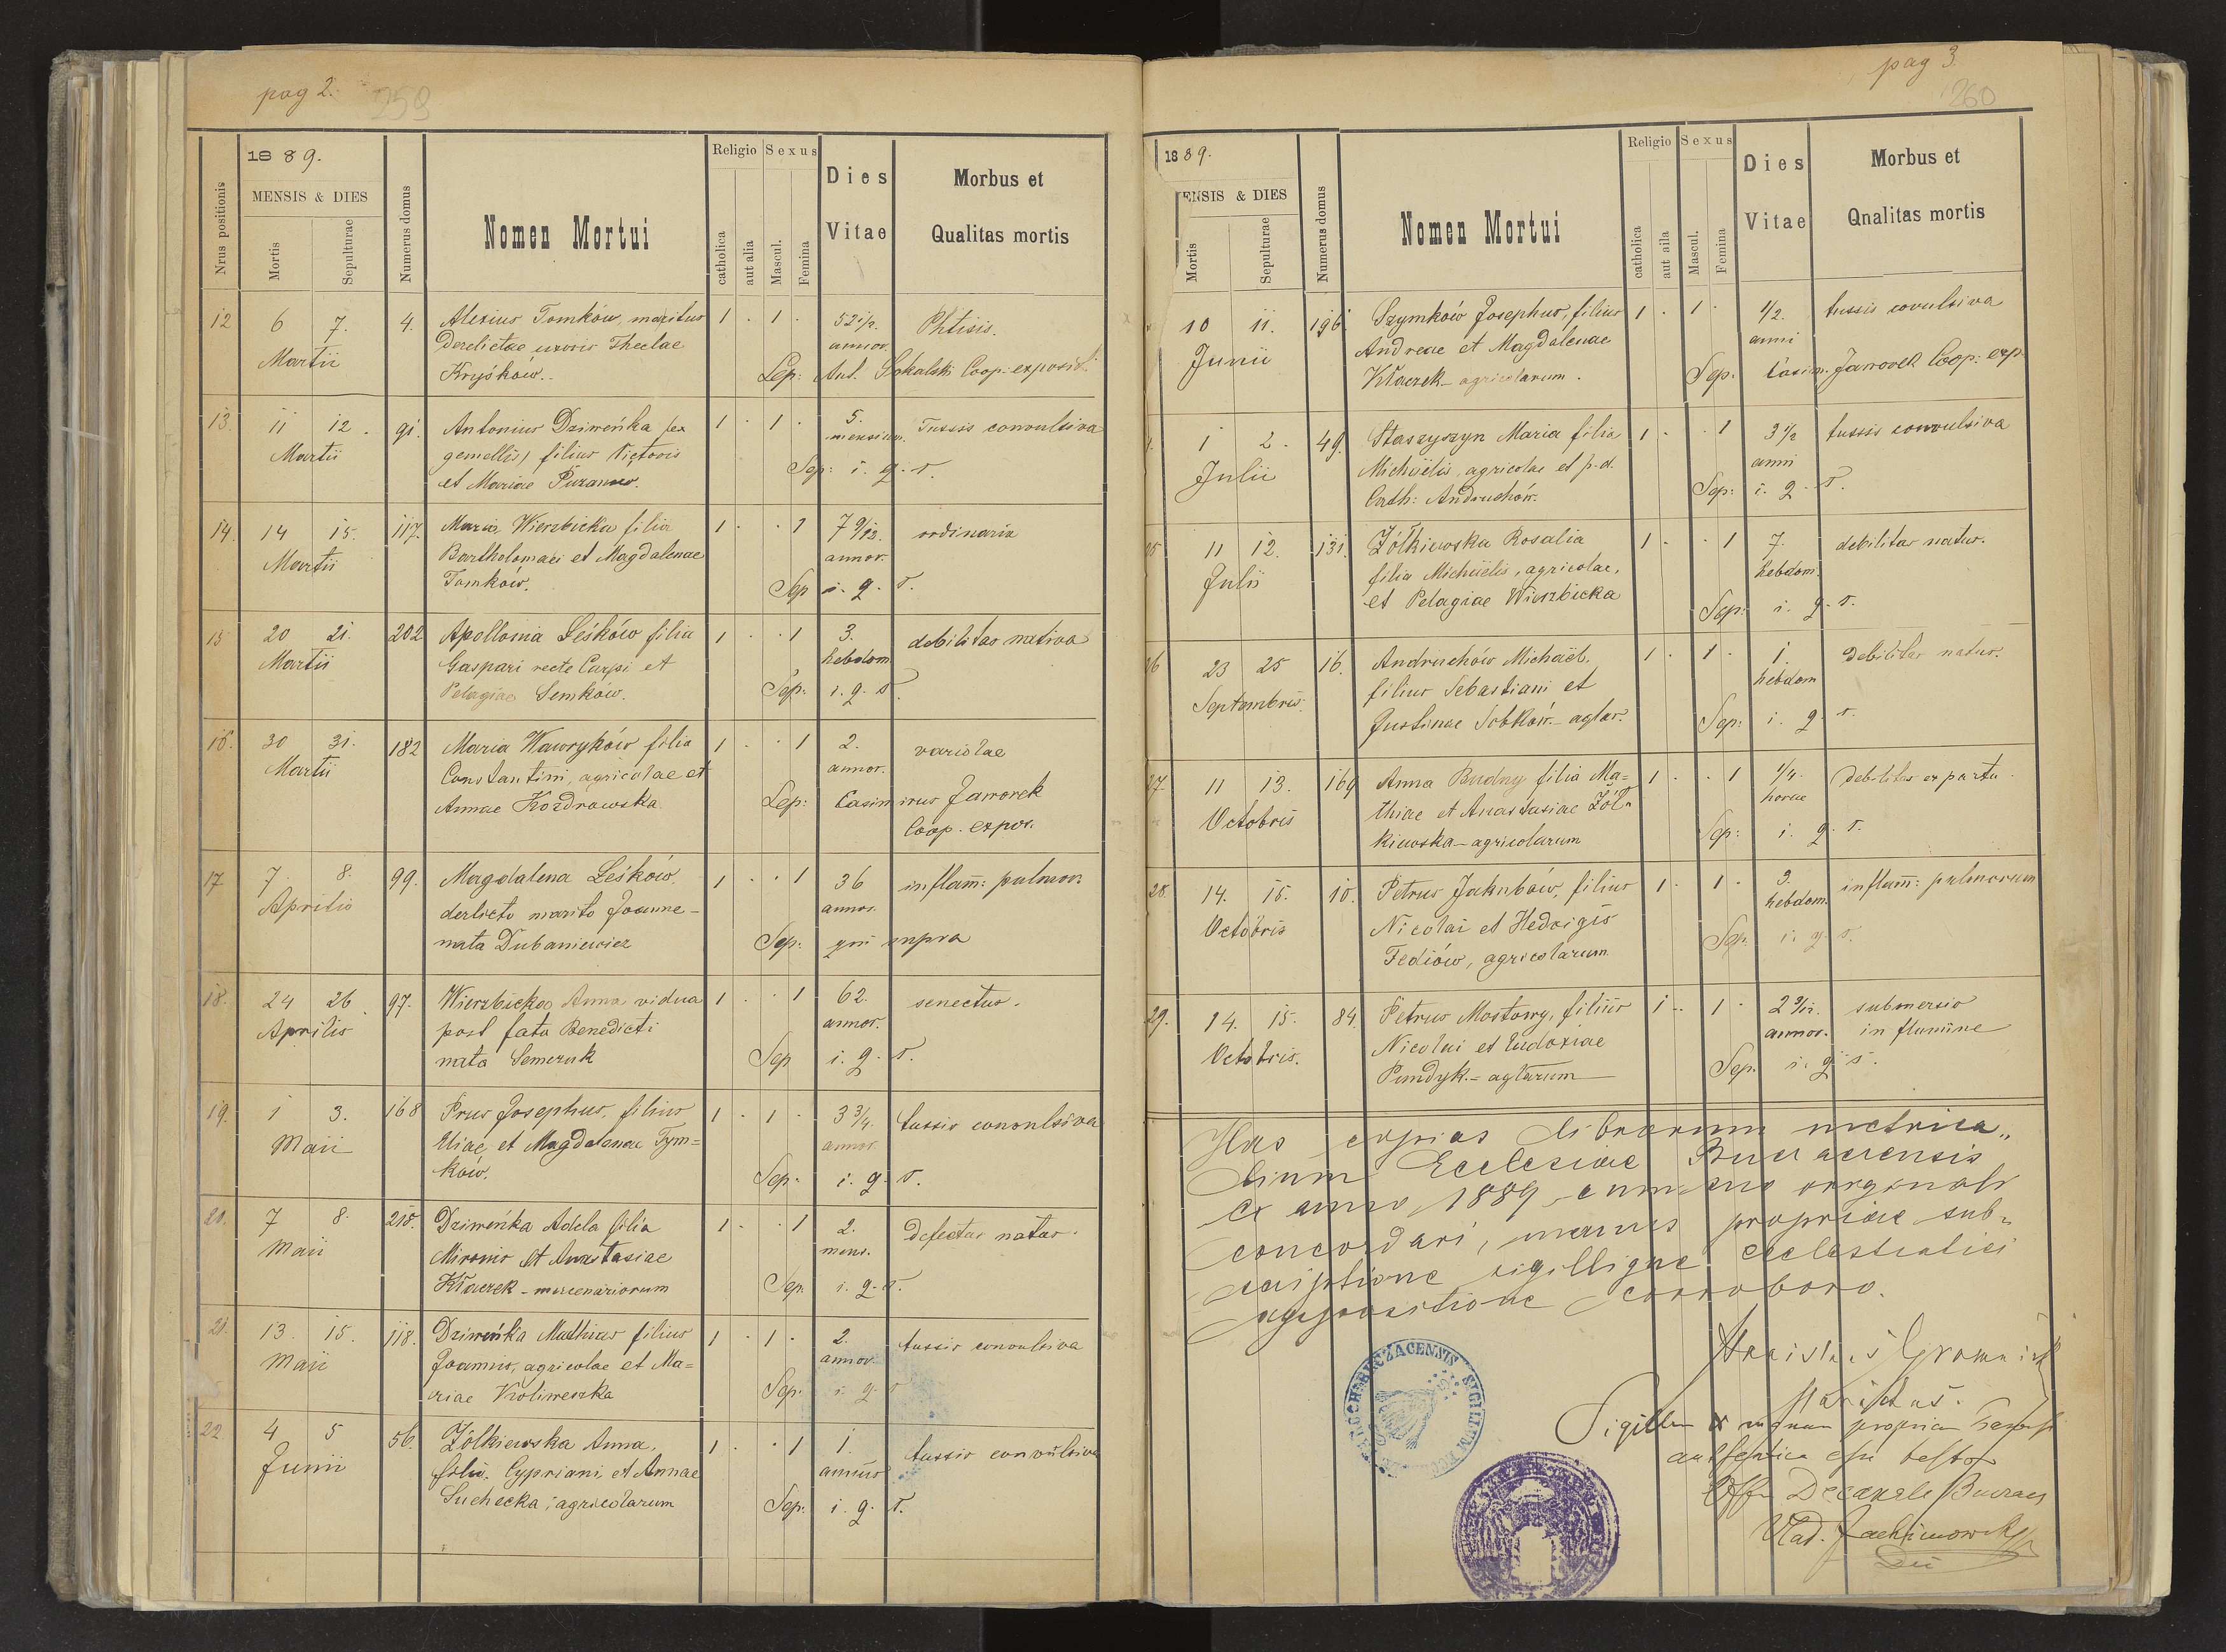 pag 2.
259
1889.
Nrus positionis
MENSIS & DIES
Mortis
Sepulturae
Numerus domus
Nomen Mortui
Religio
catholica
aut alia
Sexus
Mascul.
Femina
Dies
Vitae
Morbus et
Qualitas mortis
12 6 7. 4. Alexius Tomków, maritus 1 . 1 . 52 1/2. Phtisis.
Martii derelictae uxoris Theclae annor.
Kryśków. Sep: Ant. Sokalski Coop. exposit.
13. 11 12. 91. Antonius Dziweńka (ex 1 . 1 . 5. Tussis convulsiva
Martii gemellis) filius Victoris mensium.
et Mariae Sep: i. q. s.
14. 14 15. 117. Maria Wierzbicka filia 1 . . 1 7 9/12. ordinaria
Martii Bartholomaei et Magdalenae annor.
Tomków. Sep i. q. s.
15 20 21. 202 Apollonia Leśków filia 1 . . 1 3. debilitas nativa
Martii Gaspari recte Carpi et hebdom.
Pelagiae Semków. Sep: i. q. s.
16. 30 31. 182 Maria Wawryków filia 1 . . 1 2. variolae
Martii Constantini, agricolae et annor.
Annae Kozdrowska Sep: Casimirus Jaworek
Coop. expos.
17 7. 8. 99. Magdalena Leśków. 1 . . 1 36 inflam: pulmon.
Aprilis derlicto marito Joanne - annor.
nata Dubaniewicz Sep: qui supra
18. 24 26. 97. Wierzbicka Anna vidua 1 . . 1 62. senectus.
Aprilis post fata Benedicti annor.
nata Semczuk Sep i. q. s.
19. 1 3. 168 Prus Josephus, filius 1 . 1 . 3 3/4. tussis convulsiva
Maii Eliae et Magdalenae Tym= annor
ków. Sep: i. q. s.
20. 7 8. 215. Dziweńka Adela filia 1 . . 1 2. defectus natur.
Maii Mironis et Anastasiae mens.
Kłaczek - mercenariorum Sep. i. q. s.
21. 13. 15. 118. Dziweńka Mathias filius 1 . 1 . 2. tussis convulsiva
Maii Joannis, agricolae et Ma= annor.
riae Koliweszka Sep: i. q. s
22 4 5 56. Żółkiewska Anna, 1 . . 1 1. tussis convulsiva
Junii filia Cypriani et Annae annus
Suchecka, agricolarum Sep: i. q. s.
pag 3.
260
1889.
ENSIS & DIES
Mortis
Sepulturae
Numerus domus
Nomen Mortui
Religio
catholica
aut aila
Sexus
Mascul.
Femina
Dies
Vitae
Morbus et
Qnalitas mortis
10 11. 196. Szymków Josephus, filius 1 . 1 . 1/2. tussis covulsiva
Junii Andreae et Magdalenae anni
Kłaczek - agricolarum. Sep: Casim. Jaworek Coop: exp.
1 2. 49. Staszyszyn Maria filia 1 . . 1 3 1/2 tussis convulsiva
Julii Michaëlis, agricolae et p.d. anni
Cath: Andruchów. Sep: i. q. s.
25 11 12. 131. Żółkiewska Rosalia 1 . . 1 7. debilitas natur.
Julii filia Michaëlis, agricolae, hebdom.
et Pelagiae Wierzbicka Sep: i. q. s.
26 23 25 16. Andruchów Michaël, 1 . 1 . 1. debilitas natur.
Septembris. filius Sebastiani et hebdom
Justinae Sobków - agtar. Sep: i. q. s.
27. 11 13. 169 Anna Budny filia Ma= 1 . . 1 1/4. debilitas ex partu.
Octobris thiae et Anastasiae Żół= horae
kiewska - agricolarum Sep: i. q. s.
28. 14. 15. 10. Petrus Jakubów, filius 1 . 1 . 3. inflam: pulmorum
Octobris Nicolai et Hedvigis hebdom.
Fediów, agricolarum Sep. i. q. s.
29. 14. 15. 84. Petrus Mostowy, filius 1 . 1 . 2 9/12. submersio
Octobris. Nicolai et Eudoxiae annor. in flumine
Pundyk. - agtarum Sep. i. q. s.
Has copias librorum metrica„
lium Ecclesiae Buczacensis
ex anno 1889 cum suo originali
concordari, manus propriae sub„
scriptione sigillique ecclesiastici
appositione corroboro.
Stanislaus Gromnicki
BUCZACENSIS SIGILLIUM
Sigillum & manum propriam
authentica esse testor
Decanale Buczacz
Vlad. Jachimowski